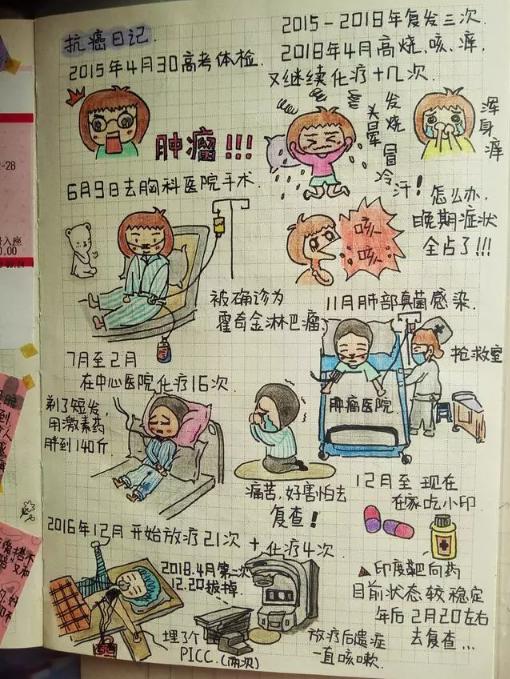 抗癌日记.
2015年4月30高考体检.
肿瘤!!!
6月9日去胸科医院手术.
被确诊为
霍奇金淋巴瘤
7月至2月
在中心医院化疗16次.
剃了短发,
用激素药
胖到140斤.
痛苦,好害怕去
复查!
2016年12月 开始放疗21次 + 化疗4次.
2018.4月第二次
12.20拔掉.
埋了个
PICC.(两次)
放疗后遗症
一直咳嗽.
2015-2018年复发三次.
2018年4月高烧、咳、痒
又继续化疗十几次.
头晕
发烧
冒冷汗!
浑身痒
咳咳
怎么办,
晚期症状
全占了!!!
11月肺部真菌感染.
抢救室
肿瘤医院
12月至 现在
在家吃小印
▲印度靶向药
目前状态较稳定
年后2月20左右
去复查...